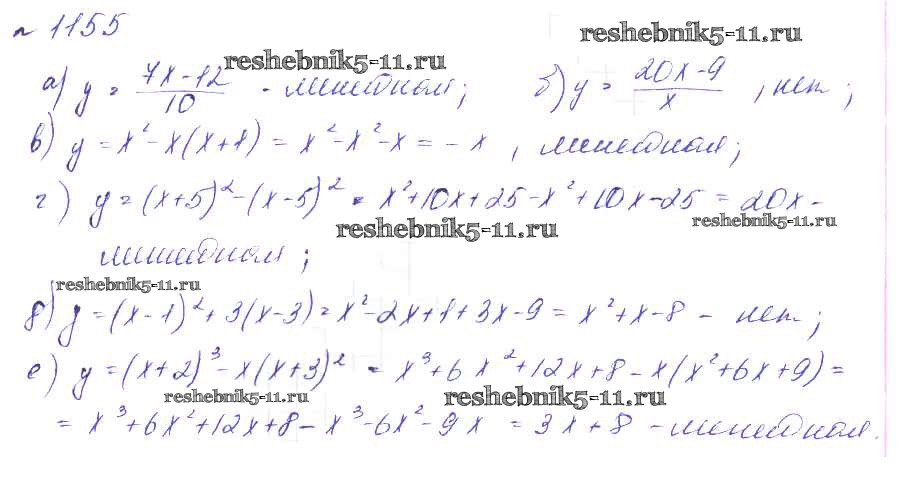 № 1155
reshebnik5-11.ru
reshebnik5-11.ru
а) y = \frac{7x-12}{10} - линейная; б) y = \frac{20x-9}{x}, нет;
в) y = x² - x(x+1) = x² - x² - x = - x, линейная;
г) y = (x+5)² - (x-5)² = x² + 10x + 25 - x² + 10x - 25 = 20x -
reshebnik5-11.ru
reshebnik5-11.ru
линейная;
reshebnik5-11.ru
д) y = (x-1)² + 3(x-3) = x² - 2x + 1 + 3x - 9 = x² + x - 8 - нет;
е) y = (x+2)³ - x(x+3)² = x³ + 6x² + 12x + 8 - x(x² + 6x + 9) =
reshebnik5-11.ru
reshebnik5-11.ru
= x³ + 6x² + 12x + 8 - x³ - 6x² - 9x = 3x + 8 - линейная.